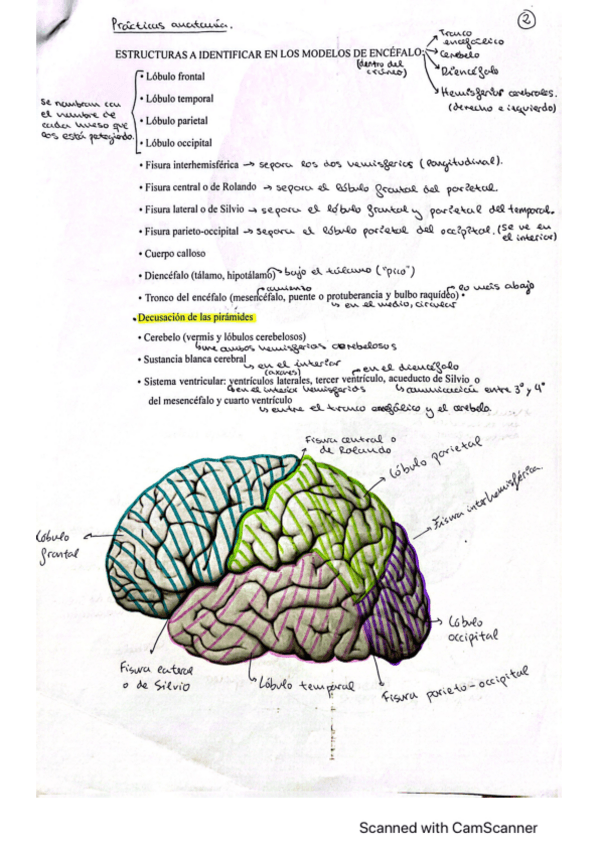 Prácticas anatomía.
2
ESTRUCTURAS A IDENTIFICAR EN LOS MODELOS DE ENCÉFALO:
(dentro del cráneo)
Tronco encefálico
Cerebelo
Diencéfalo
Hemisferios cerebrales.
(derecho e izquierdo)
se nombran con
el nombre de
cada hueso que
los está
• Lóbulo frontal
• Lóbulo temporal
• Lóbulo parietal
• Lóbulo occipital
• Fisura interhemisférica → separa los dos hemisferios (longitudinal).
• Fisura central o de Rolando → separa el lóbulo frontal del parietal.
• Fisura lateral o de Silvio → separa el lóbulo frontal y parietal del temporal.
• Fisura parieto-occipital → separa el lóbulo parietal del occipital. (se ve en
el interior)
• Cuerpo calloso
• Diencéfalo (tálamo, hipotálamo) → bajo el tálamo ("pico")
lo más abajo
• Tronco del encéfalo (mesencéfalo, puente o protuberancia y bulbo raquídeo) •
en el medio, circular
• Decusación de las pirámides
• Cerebelo (vermis y lóbulos cerebelosos)
une ambos hemisferios cerebelosos
• Sustancia blanca cerebral
en el interior
(axones)
en el diencéfalo
• Sistema ventricular: ventrículos laterales, tercer ventrículo, acueducto de Silvio o
en el interior hemisferios
comunicación entre 3º y 4º
del mesencéfalo y cuarto ventrículo
entre el tronco encefálico y el cerebelo.
Fisura central o
de Rolando
Lóbulo parietal
Fisura interhemisférica
Lóbulo
frontal
Lóbulo
occipital
Fisura lateral
o de Silvio
Lóbulo temporal
Fisura parieto-occipital
Scanned with CamScanner